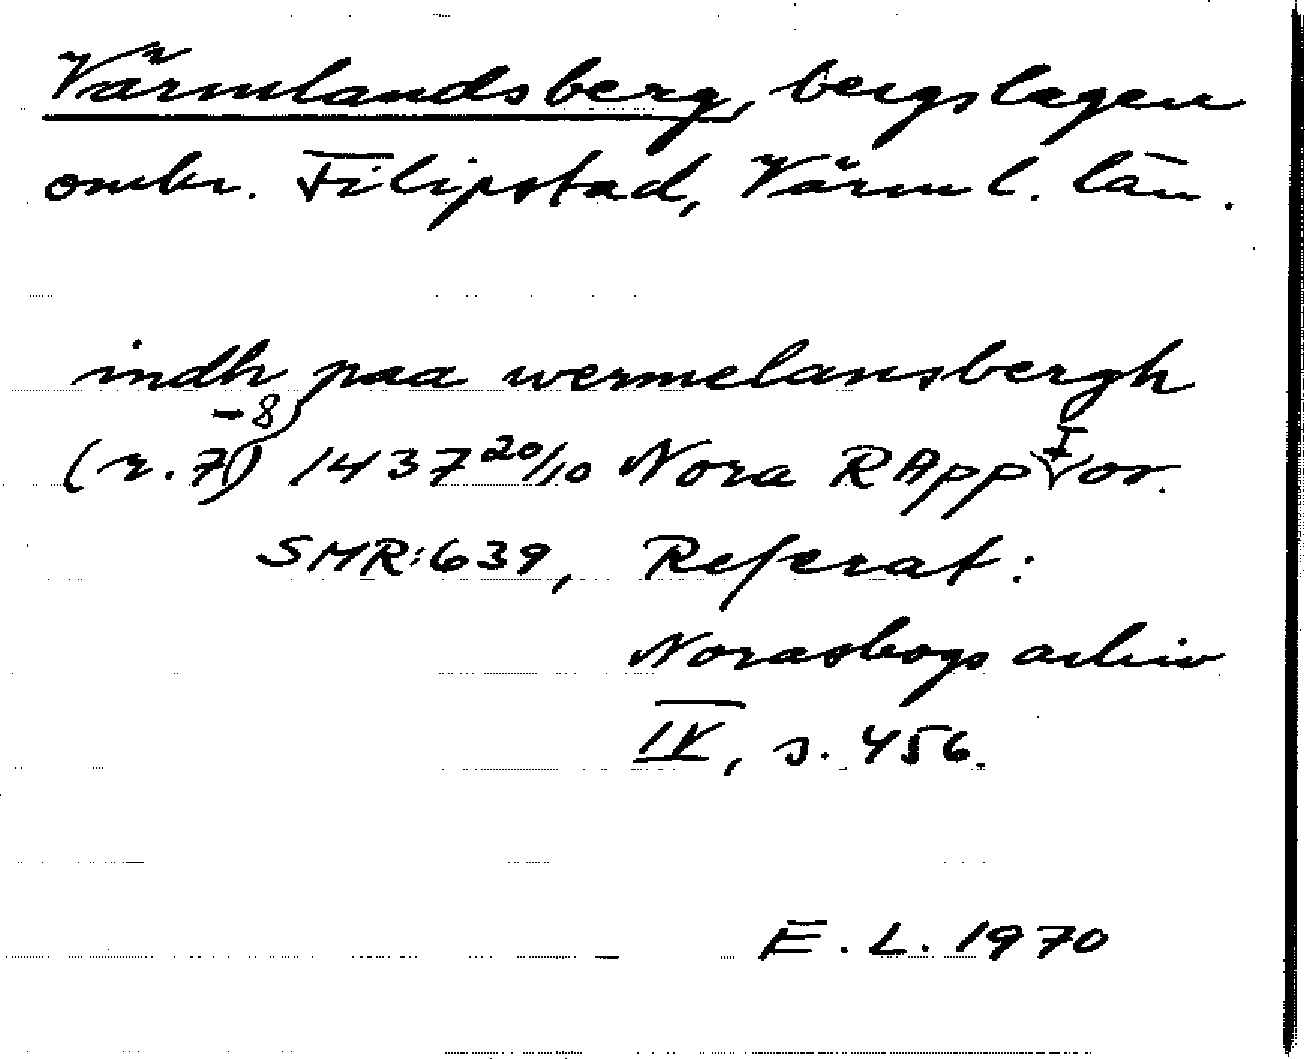 Värmlandsberg, bergslagen
omkr. Filipstad, Värml. län.
indh paa wermelansbergh
(r. 7-8) 1437 20/10 Nora RApp I or.
SMR:639, Referat:
Noraskogs arkiv
IV, s. 456.
E. L. 1970